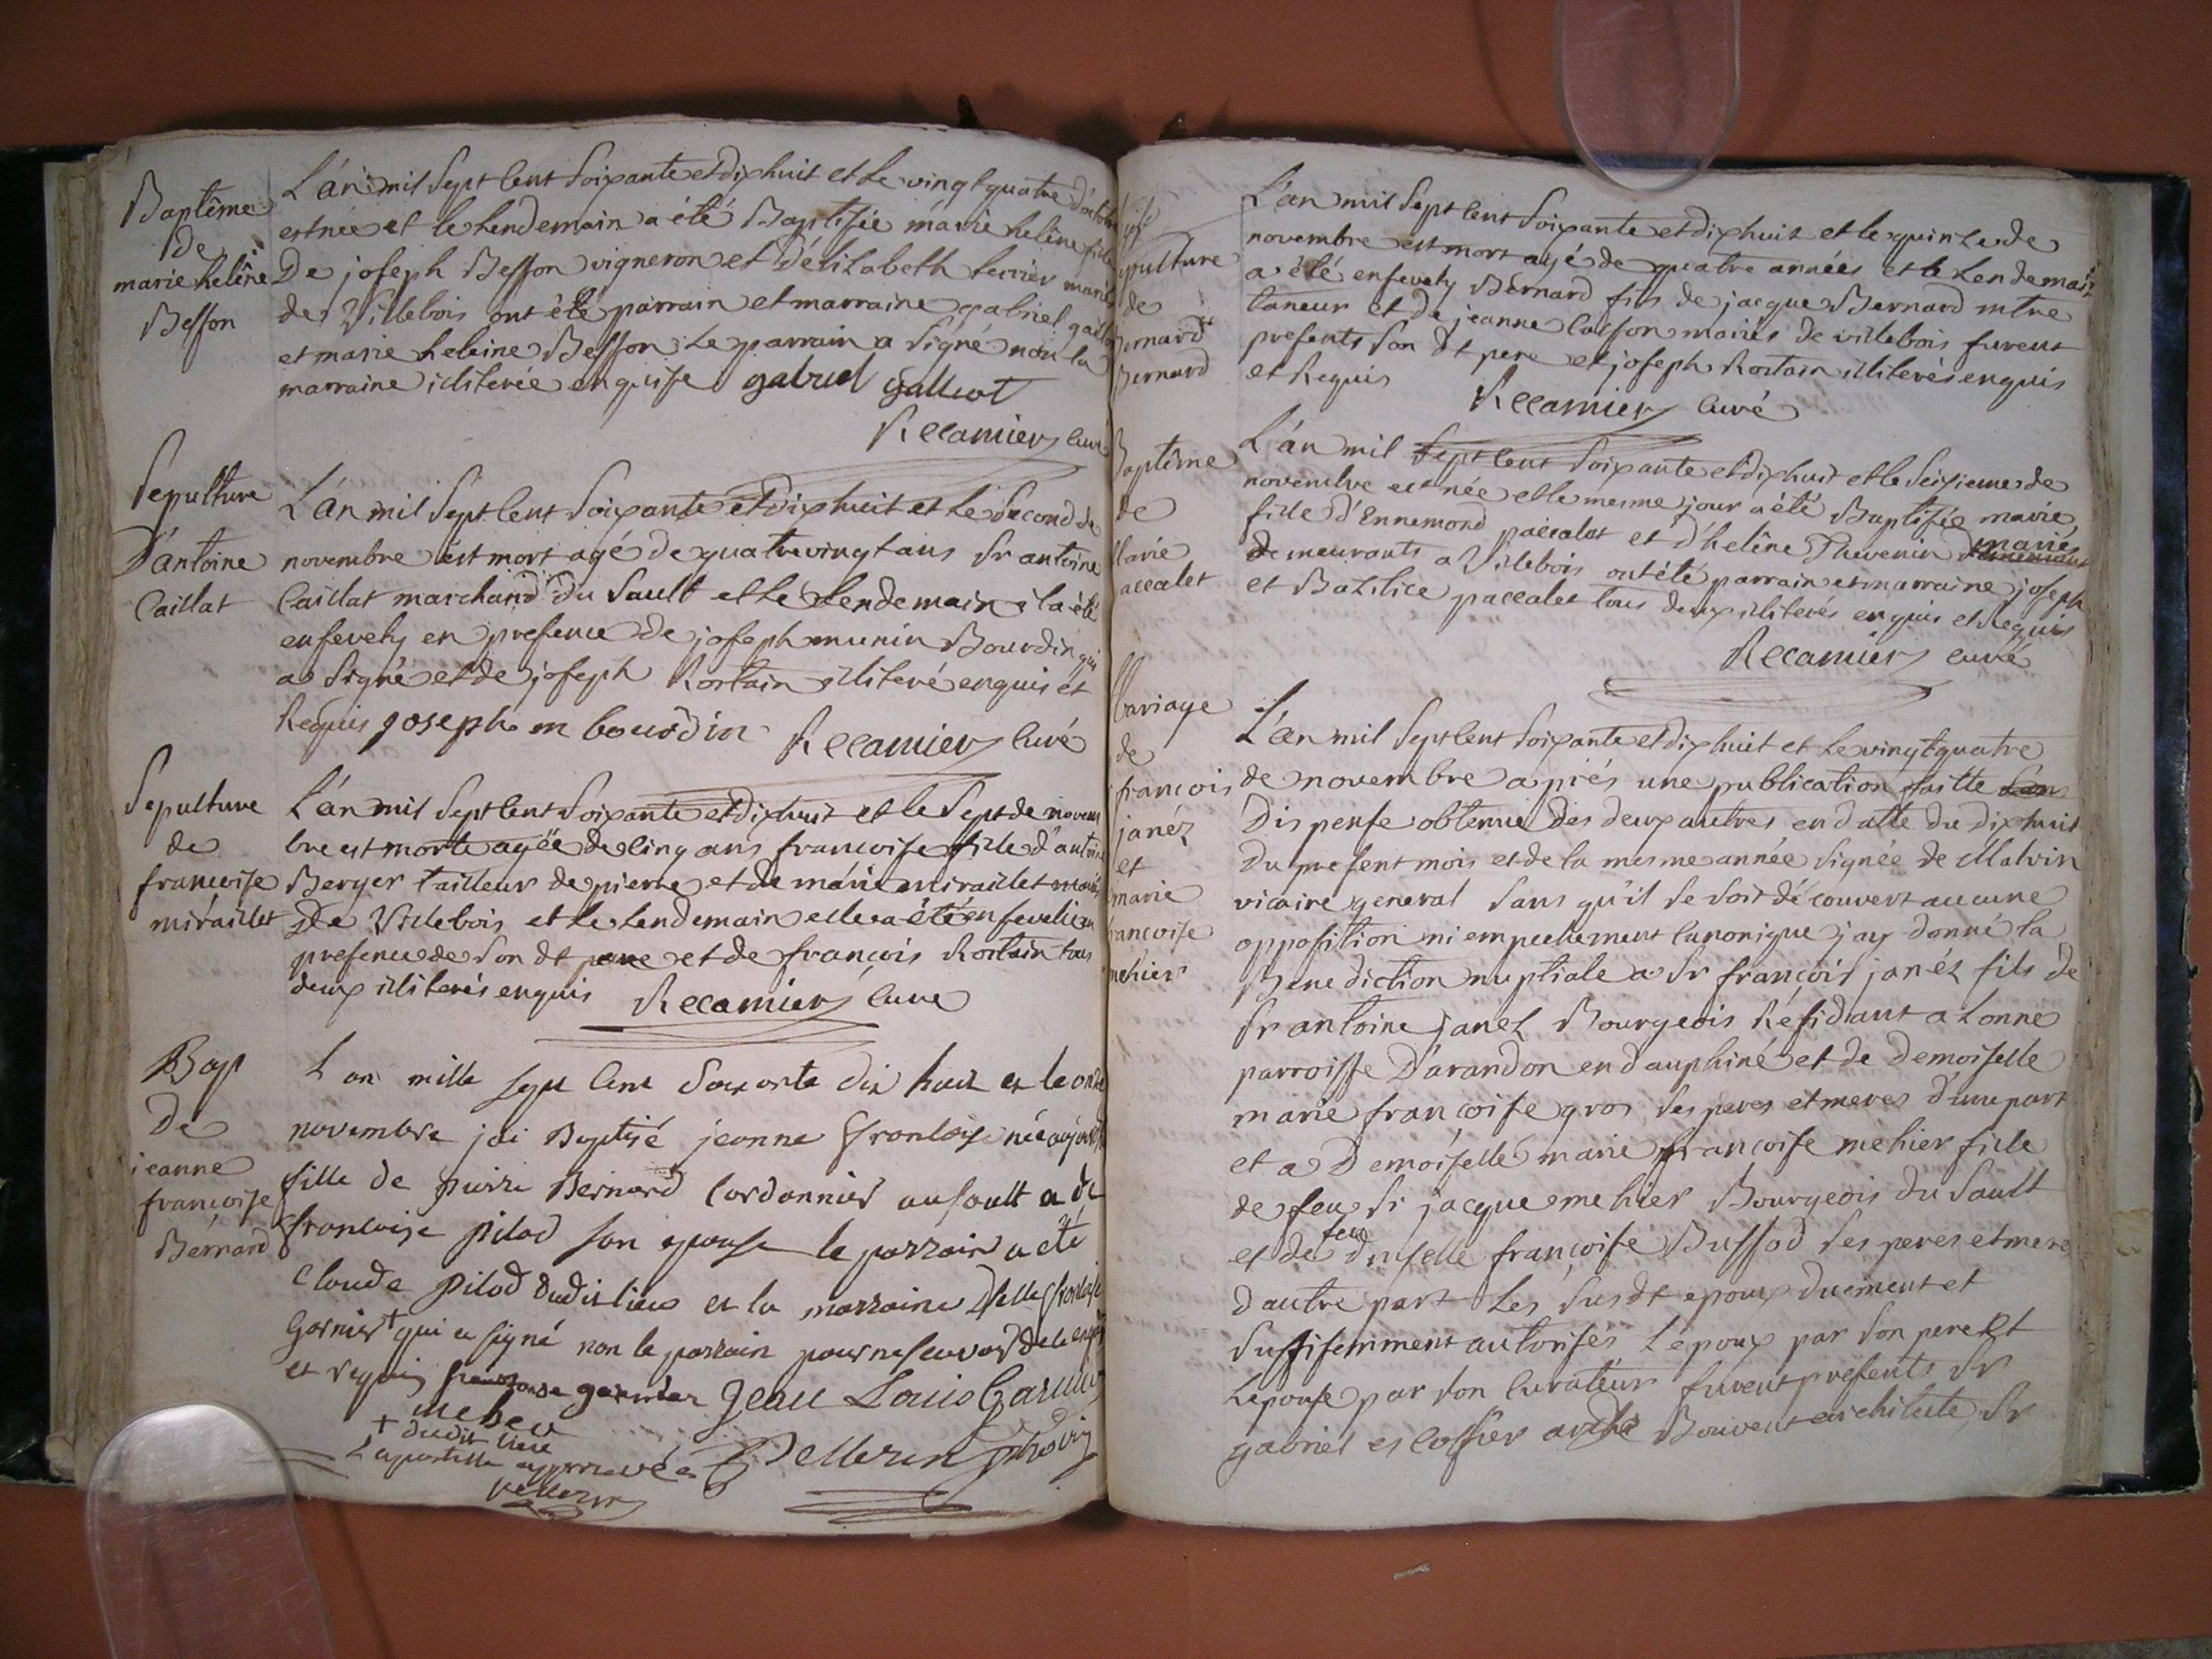 Baptême
de
marie helêne
Besson
L'an mil sept cent soixante et dix huit et le vingt quatre d'octobre
est née et le lendemain a été Baptisée marie helêne fille
De joseph Besson vigneron et d'élizabeth terrier mariés
de Villebois ont été parrain et marraine gabriel galliot
et marie heleine Besson le parrain a signé non la
marraine illiterée enquise gabriel galliot
Récamier curé
Sepulture
D'antoine
Caillat
L'an mil sept cent soixante et dix huit et le second de
novembre est mort agé de quatre vingt ans Sr antoine
Caillat marchand du Sault et le lendemain il a été
ensevely en presence de joseph munin Bourdin qui
a signé et de joseph Rostain illiteré enquis et
Requis joseph m bourdin Récamier curé
Sepulture
de
francoise
miraillet
L'an mil sept cent soixante et dix huit et le sept de novem
bre est morte agée de cinq ans francoise fille d'antoine
Berger tailleur de pierre et de marie miraillet mariés
De Villebois et le lendemain elle a été ensevelie en
presence de son dt pere et de françois Rostain tous
deux illiterés enquis Récamier curé
Bap
De
jeanne
françoise
Bernard
L an mille sept cent soixante dix huit et le onze
novembre jai Baptisé jeanne francoise née aujourd'hui
fille de pierre Bernard Cordonnier au sault a de
francoise pilod son epouse le parrain a été
Claude pilod dudit lieu et la marraine Delle francoise
Garnier + qui a signé non le parrain pour ne scavoir de ce enquis
et requis francoise garnier Jean Louis Garnier
mehier
+ dudit lieu
L apostille approuvée Pellerin
pellerin
sepulture
de
Bernard
Bernard
L'an mil sept cent soixante et dix huit et le quinze de
novembre est mort agé de quatre années et le lendemain
a été ensevely Bernard fils de jacque Bernard mtre
taneur et de jeanne Casson mariés de villebois furent
presents son dt pere et joseph Rostain illiterés enquis
et Requis Récamier curé
Baptême
de
Marie
paccalet
L'an mil sept cent soixante et dix huit et le seizieme de
novembre est née et le mesme jour a été Baptisée marie
fille d'Ennemond paccalet et d'helêne Thevenin mariés
demeurants a Villebois ont été parrain et marraine joseph
et Bazilice paccalet tous deux illiterés enquis et Requis
Récamier curé
Mariage
de
françois
janéz
et
marie
françoise
mehier
L'an mil sept cent soixante et dix huit et le vingt quatre
de novembre après une publication faitte
Dispense obtenue des deux autres en datte du dix huit
Du present mois et de la mesme année signée de Malvin
vicaire general sans qu'il se soit découvert aucune
opposition ni empechement canonique j'ay donné la
Benediction nuptiale a Sr françois janéz fils de
Sr antoine janez Bourgeois Résidant a Lonne
parroisse D'arandon en dauphiné et de Demoiselle
marie françoise gros ses peres et meres d'une part
et a Demoiselle marie françoise mehier fille
de feu Sr jacque mehier Bourgeois du Sault
feue
et de dmselle françoise Buffod ses peres et mere
d'autre part Les susdt epoux duement et
suffisemment autorisés l'epoux par son pere et
L'epouse par son curateur furent presents Sr
gabriel escoffier Bouvent architecte, Sr